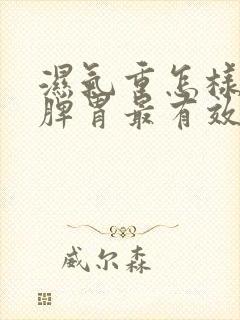 濕氣重怎樣
脾胃最有效
威尔森